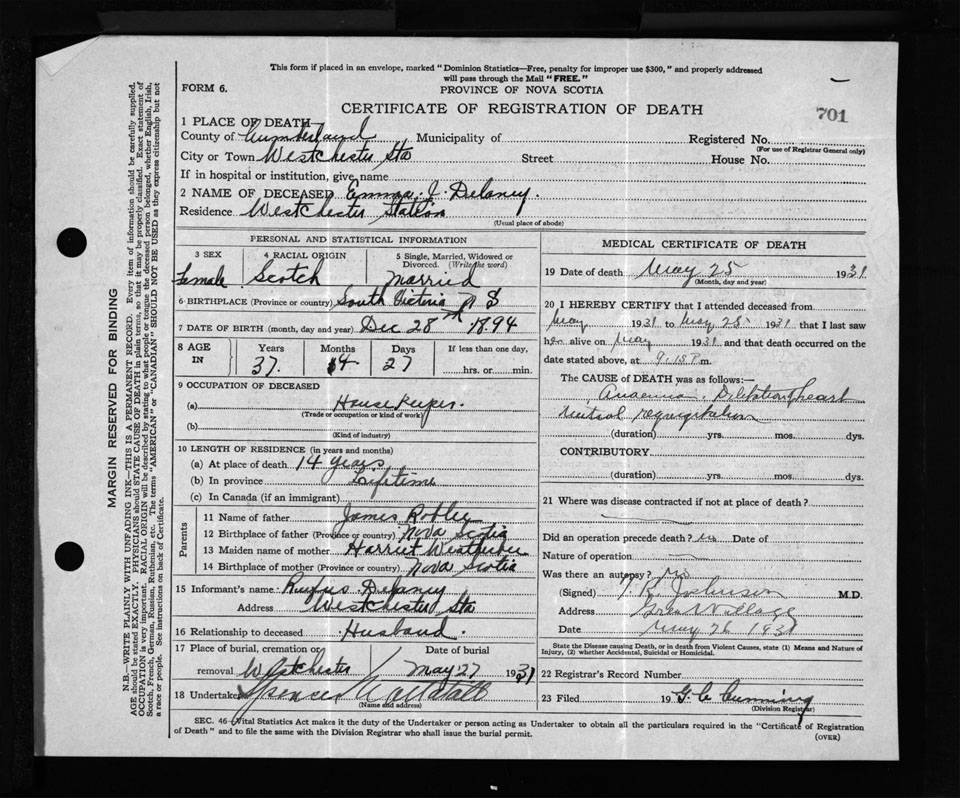 This form if placed in an envelope, marked "Dominion Statistics—Free, penalty for improper use $300," and properly addressed
will pass through the Mail "FREE."
FORM 6.
PROVINCE OF NOVA SCOTIA
CERTIFICATE OF REGISTRATION OF DEATH
701
1 PLACE OF DEATH
County of Cumberland Municipality of Registered No.
(For use of Registrar General only)
City or Town Westchester Sta Street House No.
If in hospital or institution, give name
2 NAME OF DECEASED Emma J. Delaney.
Residence Westchester Station
(Usual place of abode)
PERSONAL AND STATISTICAL INFORMATION
3 SEX 4 RACIAL ORIGIN 5 Single, Married, Widowed or
Divorced. (Write the word)
Female Scotch Married
6 BIRTHPLACE (Province or country) South Victoria N S
7 DATE OF BIRTH (month, day and year) Dec 28th 1894
8 AGE IN Years Months Days If less than one day,
37. 4 27 hrs. or min.
9 OCCUPATION OF DECEASED
(a) House Keeper.
(Trade or occupation or kind of work)
(b)
(Kind of industry)
10 LENGTH OF RESIDENCE (in years and months)
(a) At place of death 14 years
(b) In province Lifetime
(c) In Canada (if an immigrant)
Parents
11 Name of father James Roblee
12 Birthplace of father (Province or country) Nova Scotia
13 Maiden name of mother Harriet Weatherbee
14 Birthplace of mother (Province or country) Nova Scotia
15 Informant's name Rufus Delaney
Address Westchester Sta
16 Relationship to deceased Husband.
17 Place of burial, cremation or Date of burial
removal Westchester May 27 1931
18 Undertaker Spencer
(Name and address)
MEDICAL CERTIFICATE OF DEATH
19 Date of death May 25 1931
(Month, day and year)
20 I HEREBY CERTIFY that I attended deceased from
May 1931 to May 25 1931 that I last saw
her alive on May 1931 and that death occurred on the
date stated above, at 9.15 P.m.
The CAUSE OF DEATH was as follows:—
Anaemia, Dilatation of heart
regurgitation
(duration) yrs. mos. dys.
CONTRIBUTORY
(duration) yrs. mos. dys.
21 Where was disease contracted if not at place of death?
Did an operation precede death? no Date of
Nature of operation
Was there an autopsy? no
(Signed) Johnson M.D.
Address Village
Date May 26 1931
State the Disease causing Death, or in death from Violent Causes, state (1) Means and Nature of
Injury, (2) whether Accidental, Suicidal or Homicidal.
22 Registrar's Record Number
23 Filed 19 G. C. Cumming
(Division Registrar)
SEC. 46 (Vital Statistics Act makes it the duty of the Undertaker or person acting as Undertaker to obtain all the particulars required in the "Certificate of Registration
of Death" and to file the same with the Division Registrar who shall issue the burial permit.
(OVER)
MARGIN RESERVED FOR BINDING
N.B.—WRITE PLAINLY WITH UNFADING INK—THIS IS A PERMANENT RECORD. Every item of information should be carefully supplied.
AGE should be stated EXACTLY. PHYSICIANS should STATE CAUSE OF DEATH in plain terms, so that it may be properly classified. Exact statement of
OCCUPATION is very important. RACIAL ORIGIN will be described by stating to what people or tongue the deceased person belonged, whether English, Irish,
Scotch, French, German, Russian, Ruthenian, etc. The terms "AMERICAN" or "CANADIAN" SHOULD NOT BE USED as they express citizenship but not
a race or people. See instructions on back of Certificate.